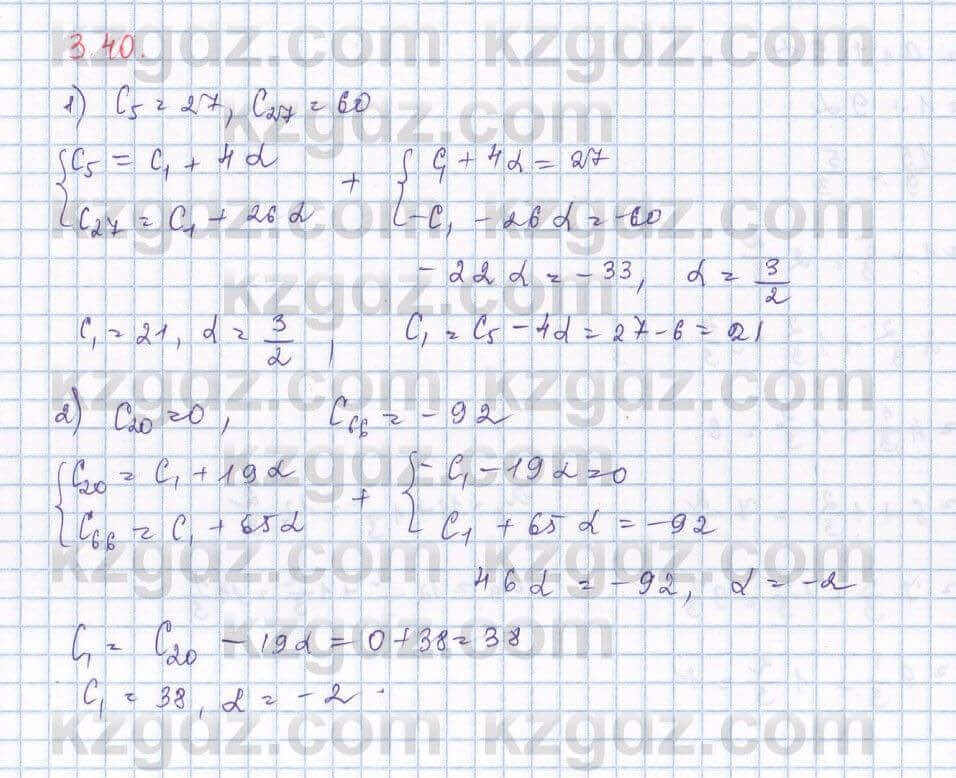 3.40.
1) C₅ = 27, C₂₇ = 60
{ C₅ = C₁ + 4d + { C₁ + 4d = 27
{ C₂₇ = C₁ + 26d { -C₁ - 26d = -60
-22d = -33, d = 3/2
C₁ = 21, d = 3/2, C₁ = C₅ - 4d = 27 - 6 = 21
2) C₂₀ = 0, C₆₆ = -92
{ C₂₀ = C₁ + 19d + { -C₁ - 19d = 0
{ C₆₆ = C₁ + 65d { C₁ + 65d = -92
46d = -92, d = -2
C₁ = C₂₀ - 19d = 0 + 38 = 38
C₁ = 38, d = -2.
kzgdz.com kzgdz.com
kzgdz.com
kzgdz.com kzgdz.com
kzgdz.com
kzgdz.com kzgdz.com
kzgdz.com
kzgdz.com kzgdz.com
kzgdz.com
kzgdz.com kzgdz.com